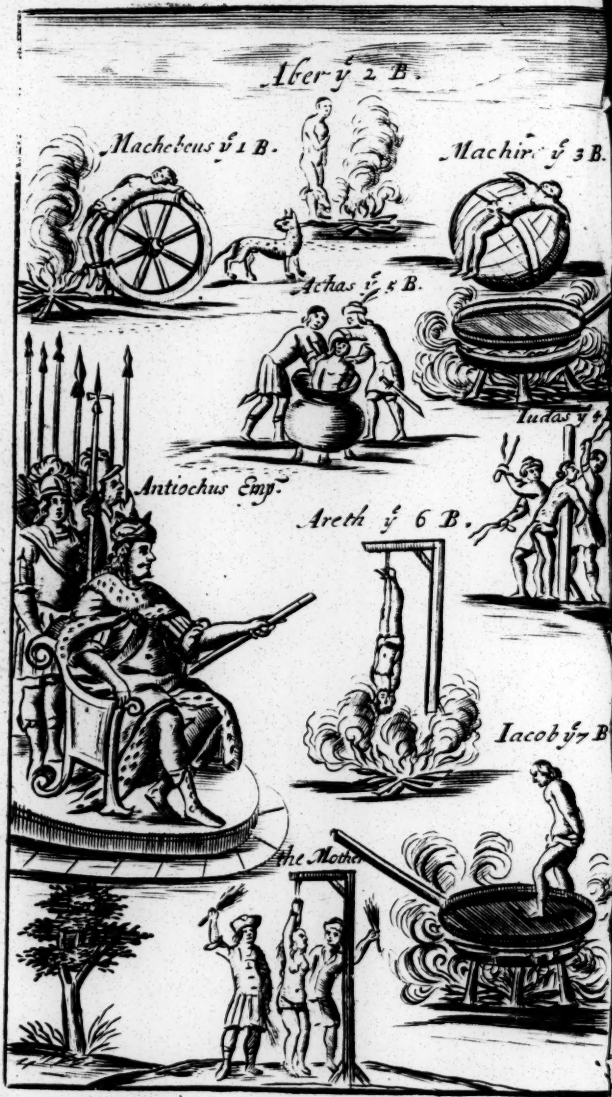 Aber yͤ 2 B.
Machebeus yͤ 1 B.
Machir yͤ 3 B.
Achas yͤ 5 B.
Iudas yͤ 4
Antiochus Emp.
Areth yͤ 6 B.
Iacob yͤ 7 B
the Mother